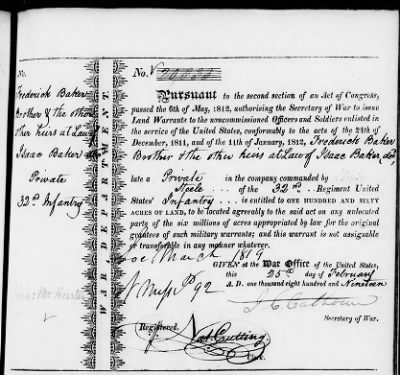 No.
Frederick Baker
brother & the other
heirs at Law of
Isaac Baker
Private
32d Infantry
WAR DEPARTMENT.
No.
Pursuant to the second section of an Act of Congress,
passed the 6th of May, 1812, authorising the Secretary of War to issue
Land Warrants to the noncommissioned Officers and Soldiers enlisted
in the service of the United States, conformably to the acts of the 24th
December, 1811, and of the 11th of January, 1812, Frederick Baker
Brother & the other heirs at Law of Isaac Baker, decd
late a Private in the company commanded by
Steele of the 32d Regiment United
States' Infantry is entitled to ONE HUNDRED AND SIXTY
ACRES OF LAND, to be located agreeably to the said act on any unlocated
parts of the six millions of acres appropriated by law for the original
grantees of such military warrants; and this warrant is not assignable
or transferable in any manner whatever.
Loc March 1819
GIVEN at the War Office of the United States,
this 25th day of February
A. D. one thousand eight hundred and Nineteen
92
J C Calhoun
Secretary of War.
Registered.
Nat Cutting
Clerk.